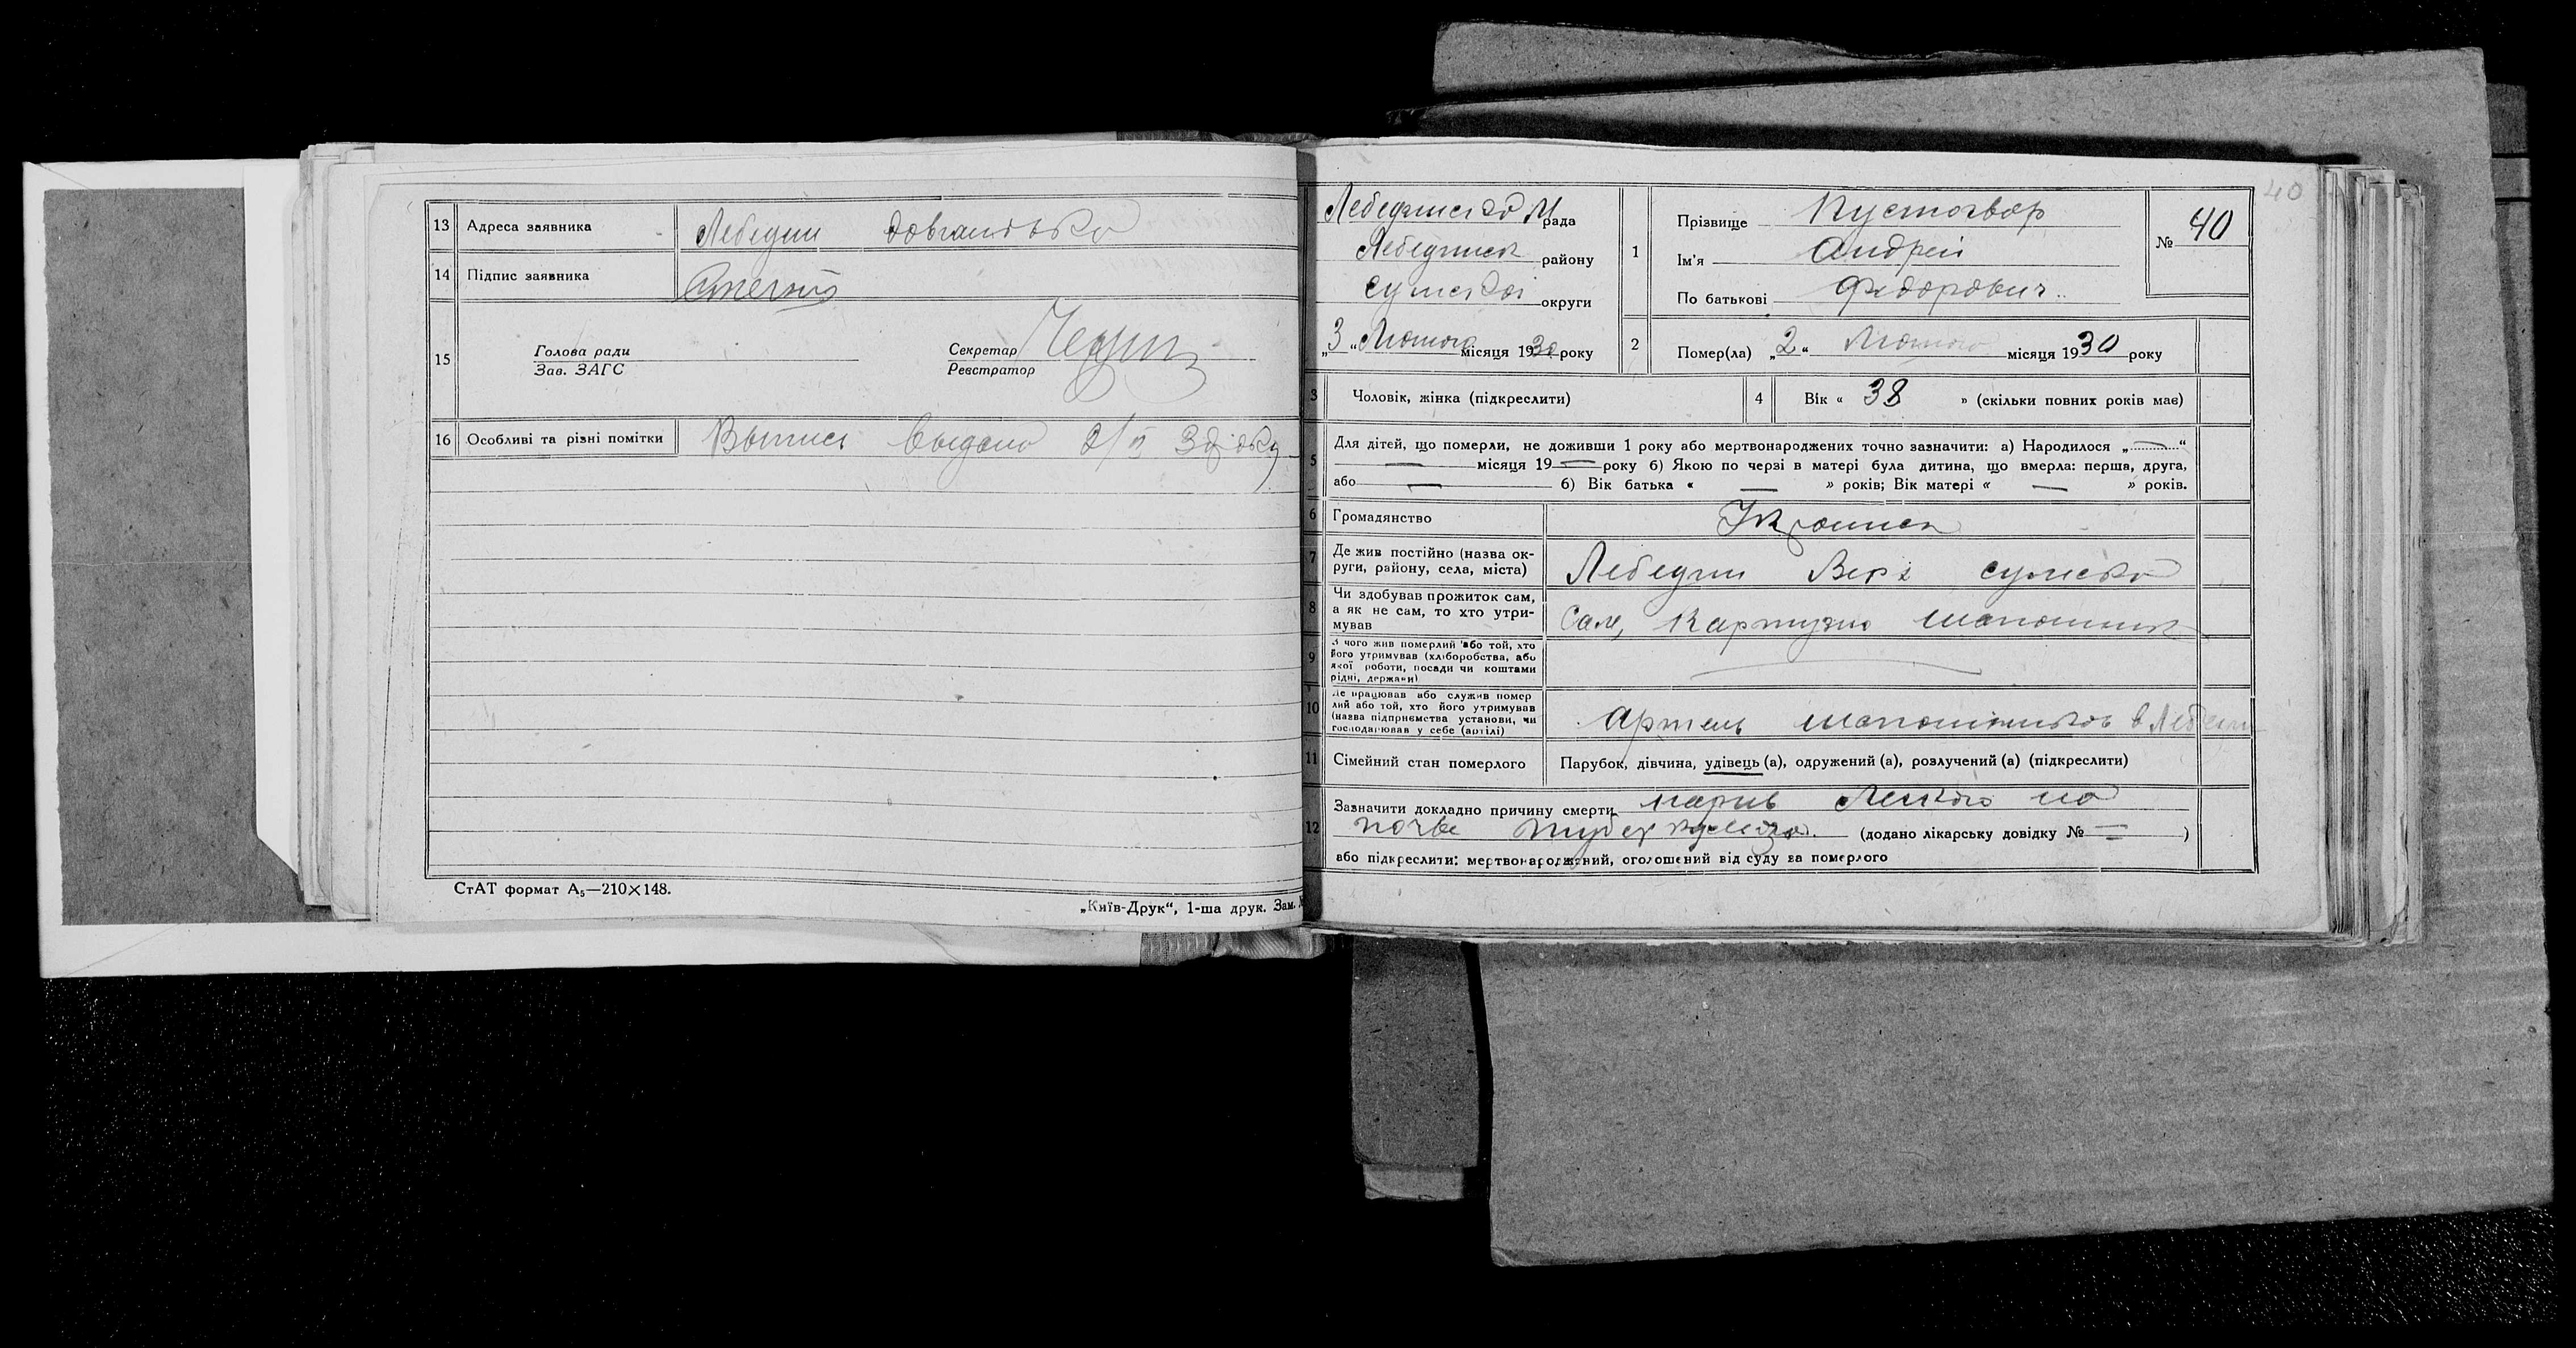 13 Адреса заявника Лебедин
14 Підпис заявника
15 Голова ради
Зав. ЗАГС
Секретар
Реєстратор
16 Особливі та різні помітки Выпись выдана 2/II 30
СтАТ формат А₅—210×148.
„Київ-Друк“, 1-ша друк. Зам.
40
Лебединської М рада
Лебединск району
Сумської округи
„3“ Лютого місяця 1930 року
1 Прізвище Пустогвар
Ім'я Андрей
По батькові Федорович
№ 40
2 Помер(ла) „2“ Лютого місяця 1930 року
3 Чоловік, жінка (підкреслити)
4 Вік « 38 » (скільки повних років має)
5 Для дітей, що померли, не доживши 1 року або мертвонароджених точно зазначити: а) Народилося „—“
— місяця 19— року б) Якою по черзі в матері була дитина, що вмерла: перша, друга,
або — б) Вік батька « — » років; Вік матері « — » років.
6 Громадянство Украинец
7 Де жив постійно (назва ок-
руги, району, села, міста) Лебедин Верх Сумска
8 Чи здобував прожиток сам,
а як не сам, то хто утри-
мував Сам, шапошник
9 З чого жив померлий або той, хто
його утримував (хліборобства, або
якої роботи, посади чи коштами
рідні, держави) —
10 Де працював або служив помер
лий або той, хто його утримував
(назва підприємства установи, чи
господарював у себе (артілі) Артель шапошников в Лебедин
11 Сімейний стан померлого Парубок, дівчина, удівець (а), одружений (а), розлучений (а) (підкреслити)
12 Зазначити докладно причину смерти нарив Легкого на
почве туберкулеза. (додано лікарську довідку № — )
або підкреслити: мертвонароджений, оголошений від суду за померлого